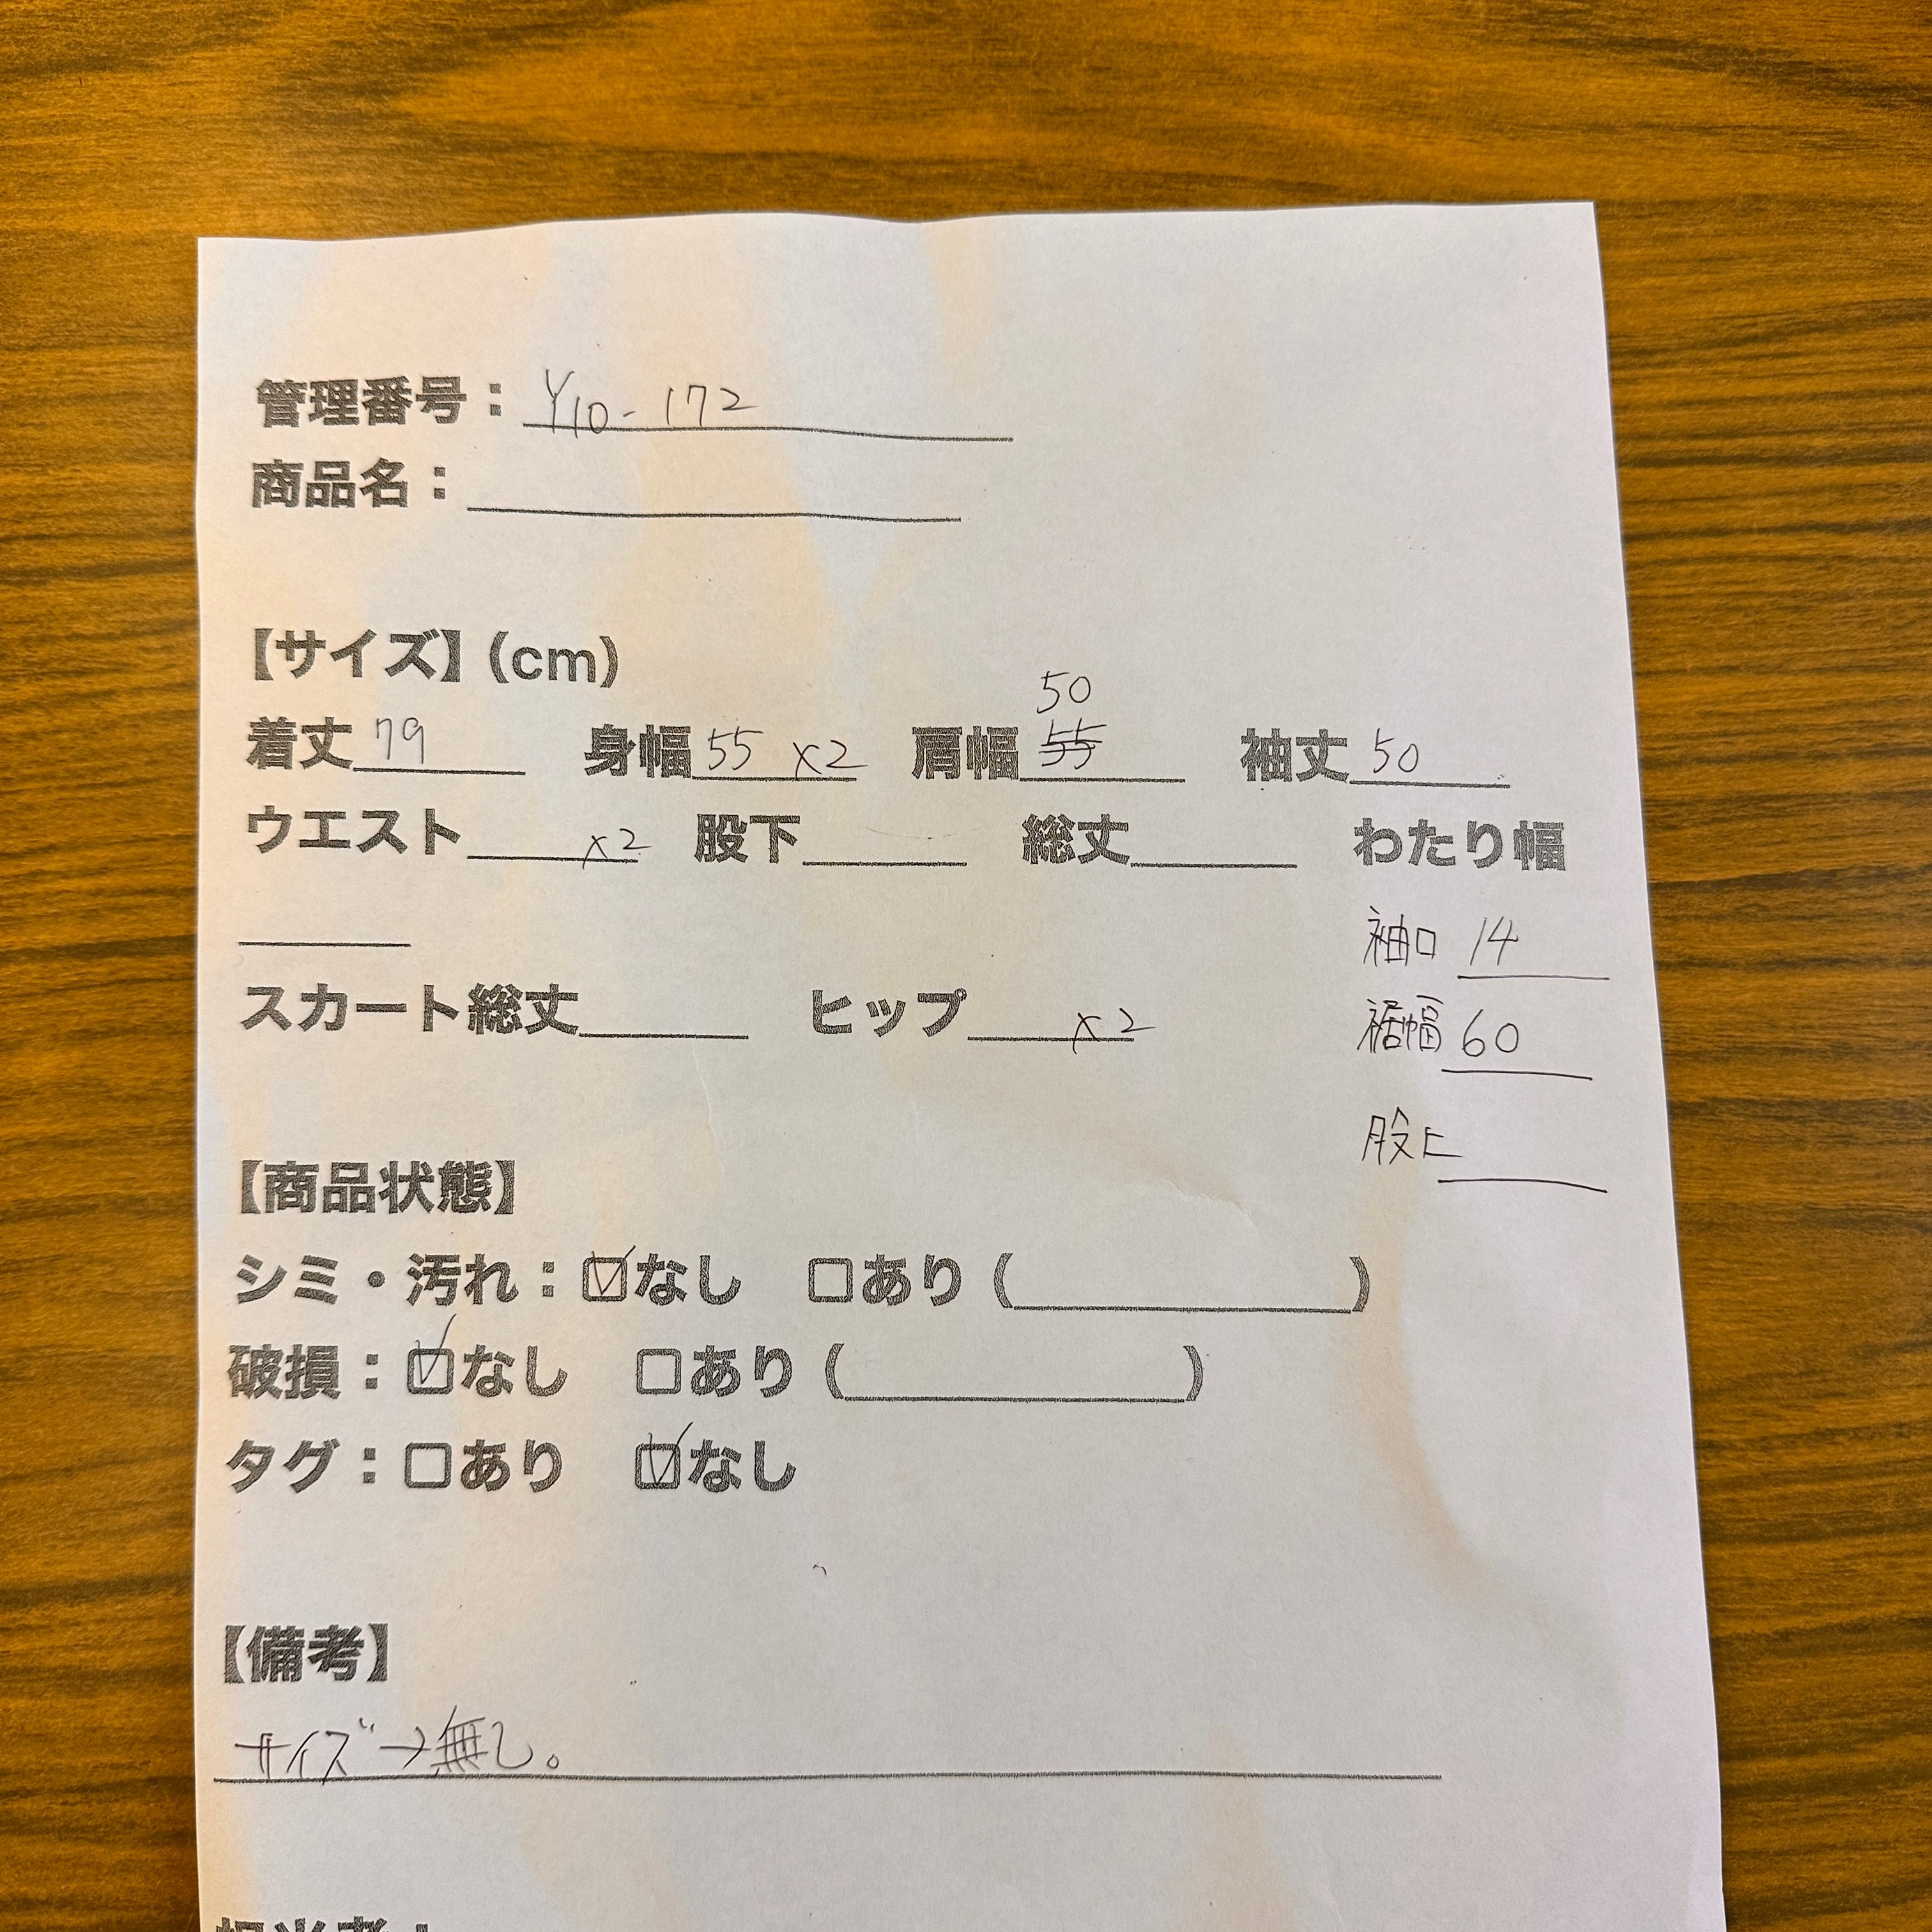 管理番号：Y10-172
商品名：
【サイズ】(cm)
50
着丈 79 身幅 55 ×2 肩幅 55 袖丈 50
ウエスト ×2 股下 総丈 わたり幅
袖口 14
スカート総丈 ヒップ ×2
裾幅 60
股上
【商品状態】
シミ・汚れ：☑なし □あり（ ）
破損：☑なし □あり（ ）
タグ：□あり ☑なし
【備考】
サイズ→無し。